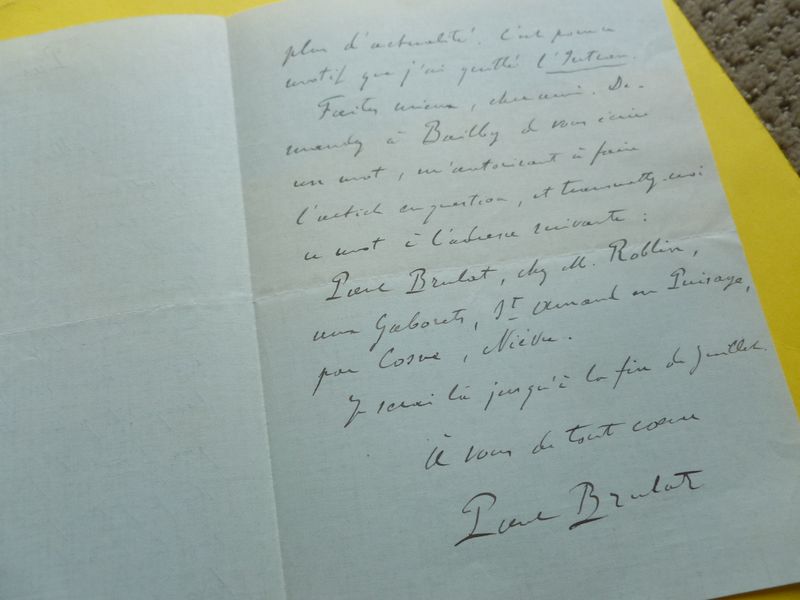 plus d'actualité. C'est pour ce
motif que j'ai quitté l'Intran.
Faites mieux, cher ami. De-
mandez à Bailby de vous écrire
un mot, m'autorisant à faire
l'article en question, et transmettez-moi
ce mot à l'adresse suivante :
Paul Brulat, chez M. Roblin,
aux Gaborets, St Amand en Puisaye,
par Cosne, Nièvre.
Je serai là jusqu'à la fin de Juillet.
À vous de tout cœur
Paul Brulat